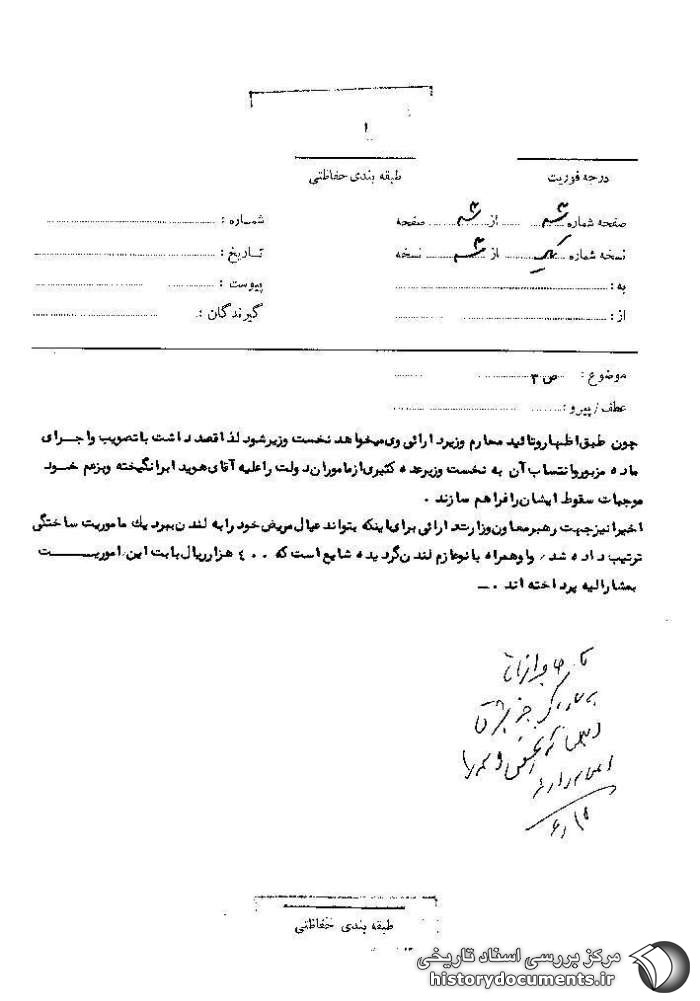 طبقه بندی حفاظتی
درجه فوریت
صفحه شماره سه از سه صفحه
شماره :
نسخه شماره یک از سه نسخه
تاریخ :
به :
پیوست :
از :
گیرندگان :
موضوع : ص ۳
عطف / پیرو :
چون طبق اظهار و تائید محارم وزیر دارائی وی میخواهد نخست وزیر شود لذا قصد داشت با تصویب و اجرای
ماده مزبور و انتساب آن به نخست وزیر عده کثیری از ماموران دولت را علیه آقای هویدا برانگیخته و بزعم خود
موجبات سقوط ایشان را فراهم سازند .
اخیرا نیز جهت رهبر معاون وزارت دارائی برای اینکه بتواند عیال مریض خود را به لندن ببرد یك ماموریت ساختگی
ترتیب داده شده و او همراه بانو عازم لندن گردیده شایع است که ۴۰۰ هزار ریال بابت این ماموریت
بمشارالیه پرداخته اند .
طبقه بندی حفاظتی
مرکز بررسی اسناد تاریخی
historydocuments.ir